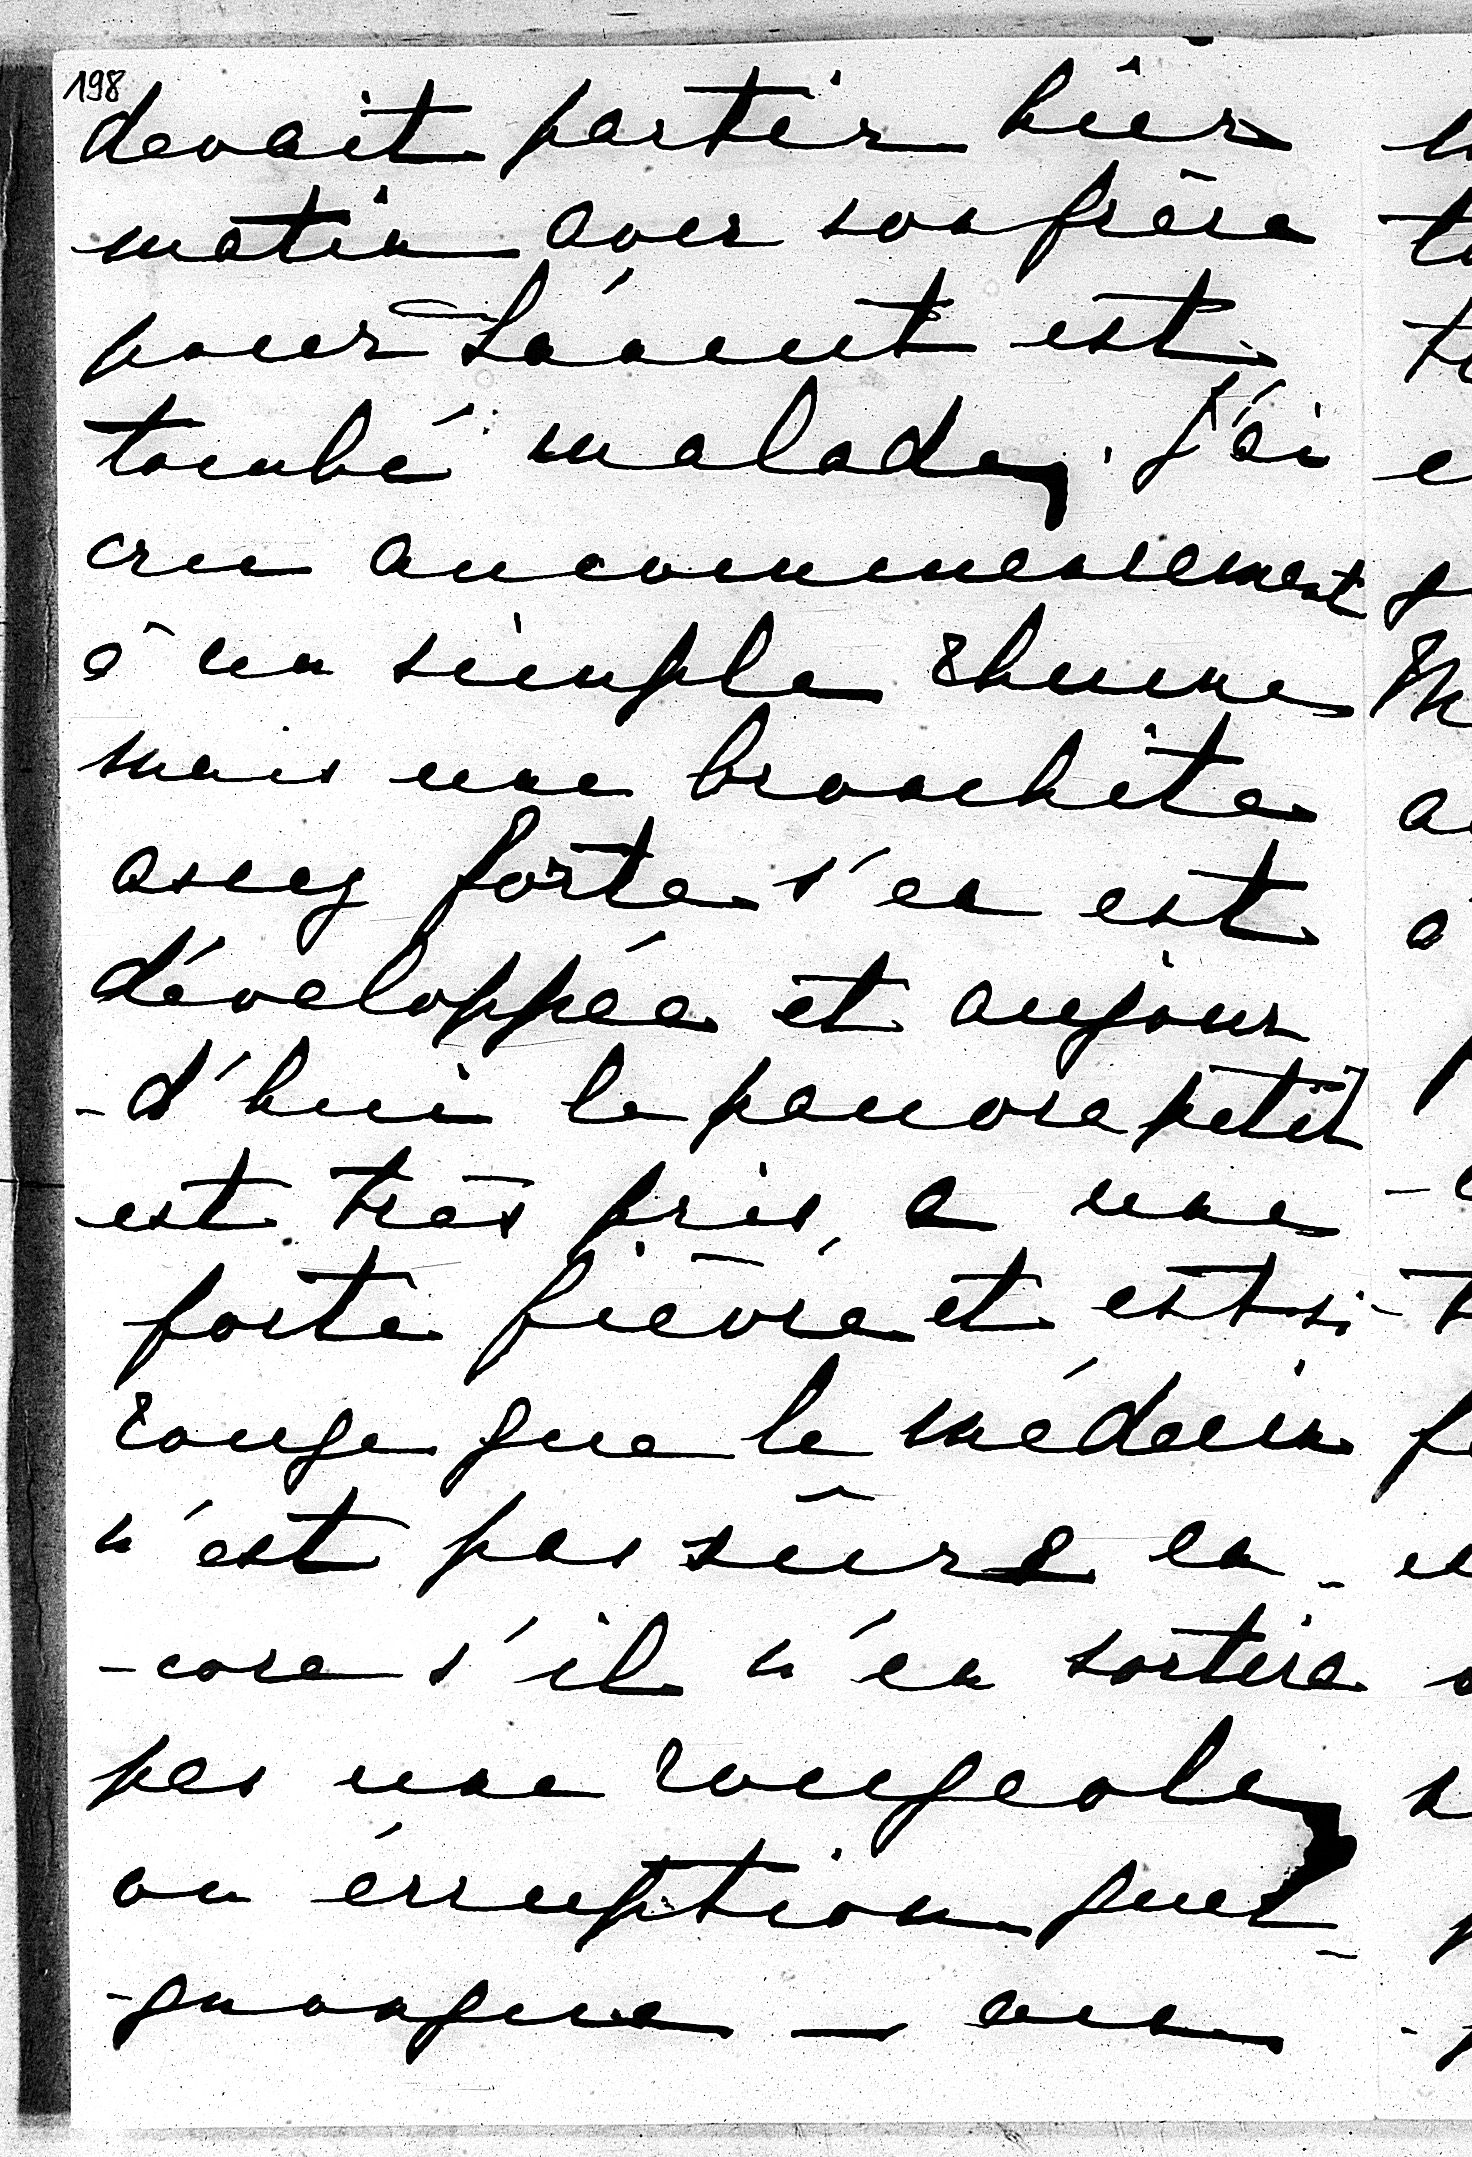 198
devait partir hier
matin avec son frère
pour est
tombé malade, j'ai
cru au commencement
à un simple rhume
mais une bronchite
assez forte s'en est
développée et aujour
-d'hui le pauvre petit
est très pris, a une
forte fièvre et est si
rouge que le médecin
n'est pas sûre en-
-core s'il n'en sortira
pas une rougeole
ou érruption quel-
-quonque —